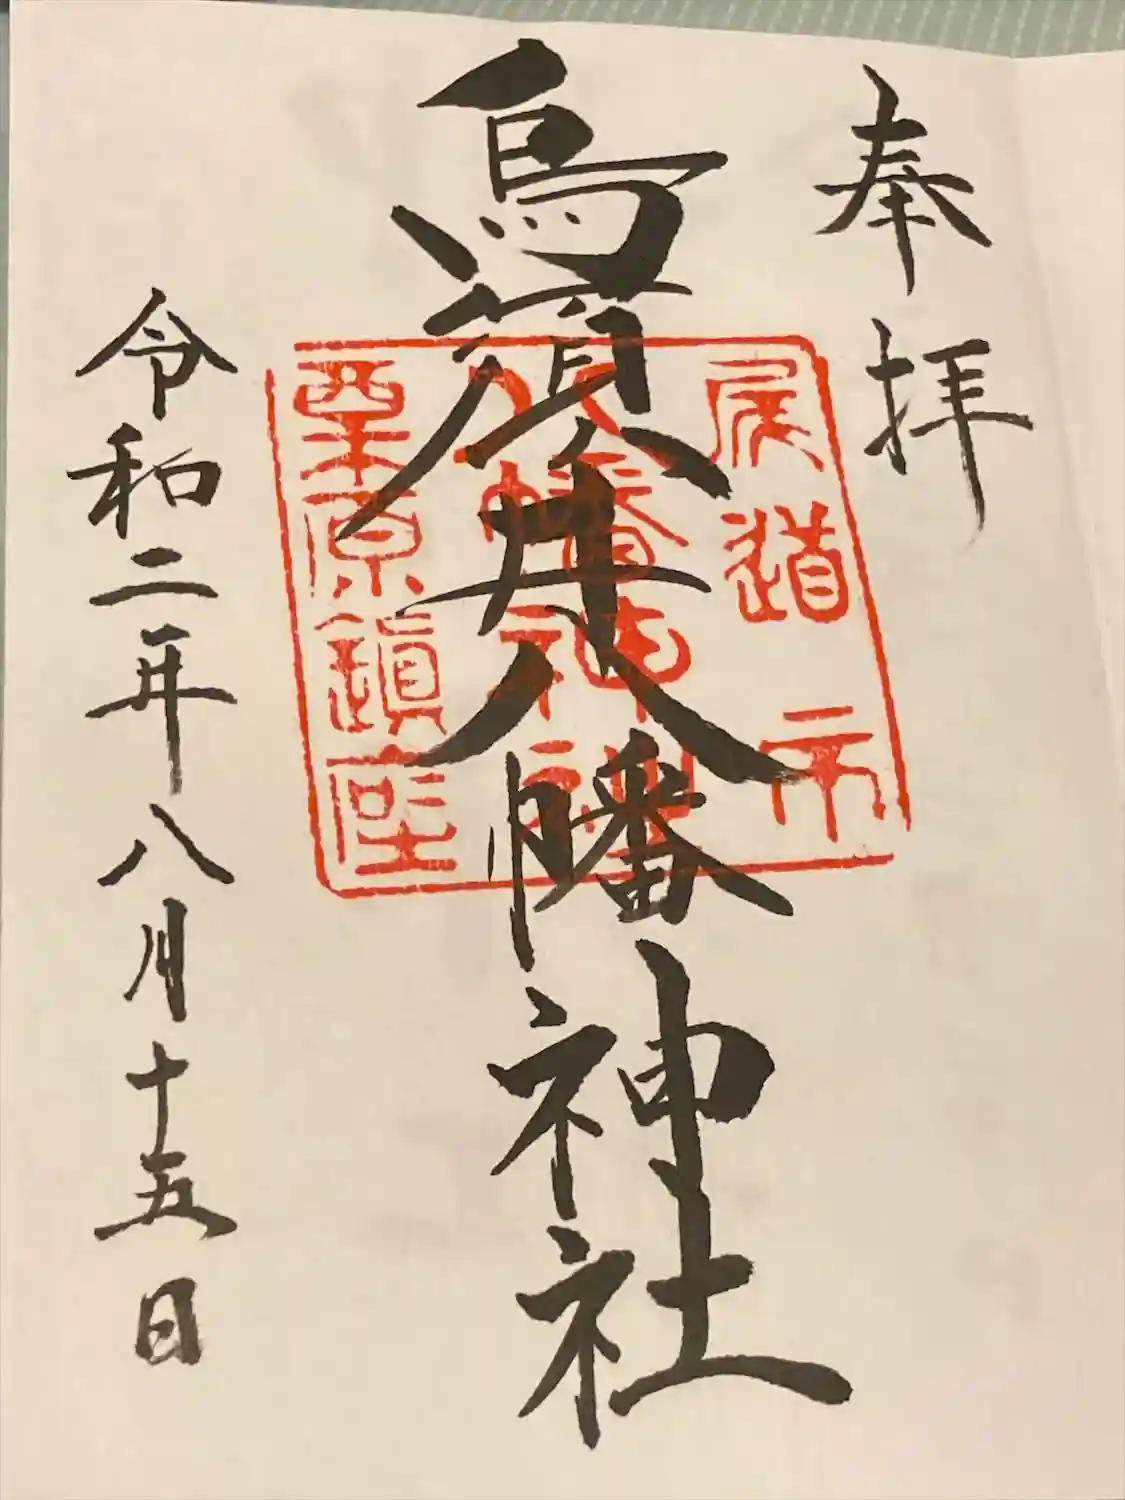 奉拝
烏須井八幡神社
令和二年八月十五日
尾道市
八幡神社
栗原鎮座